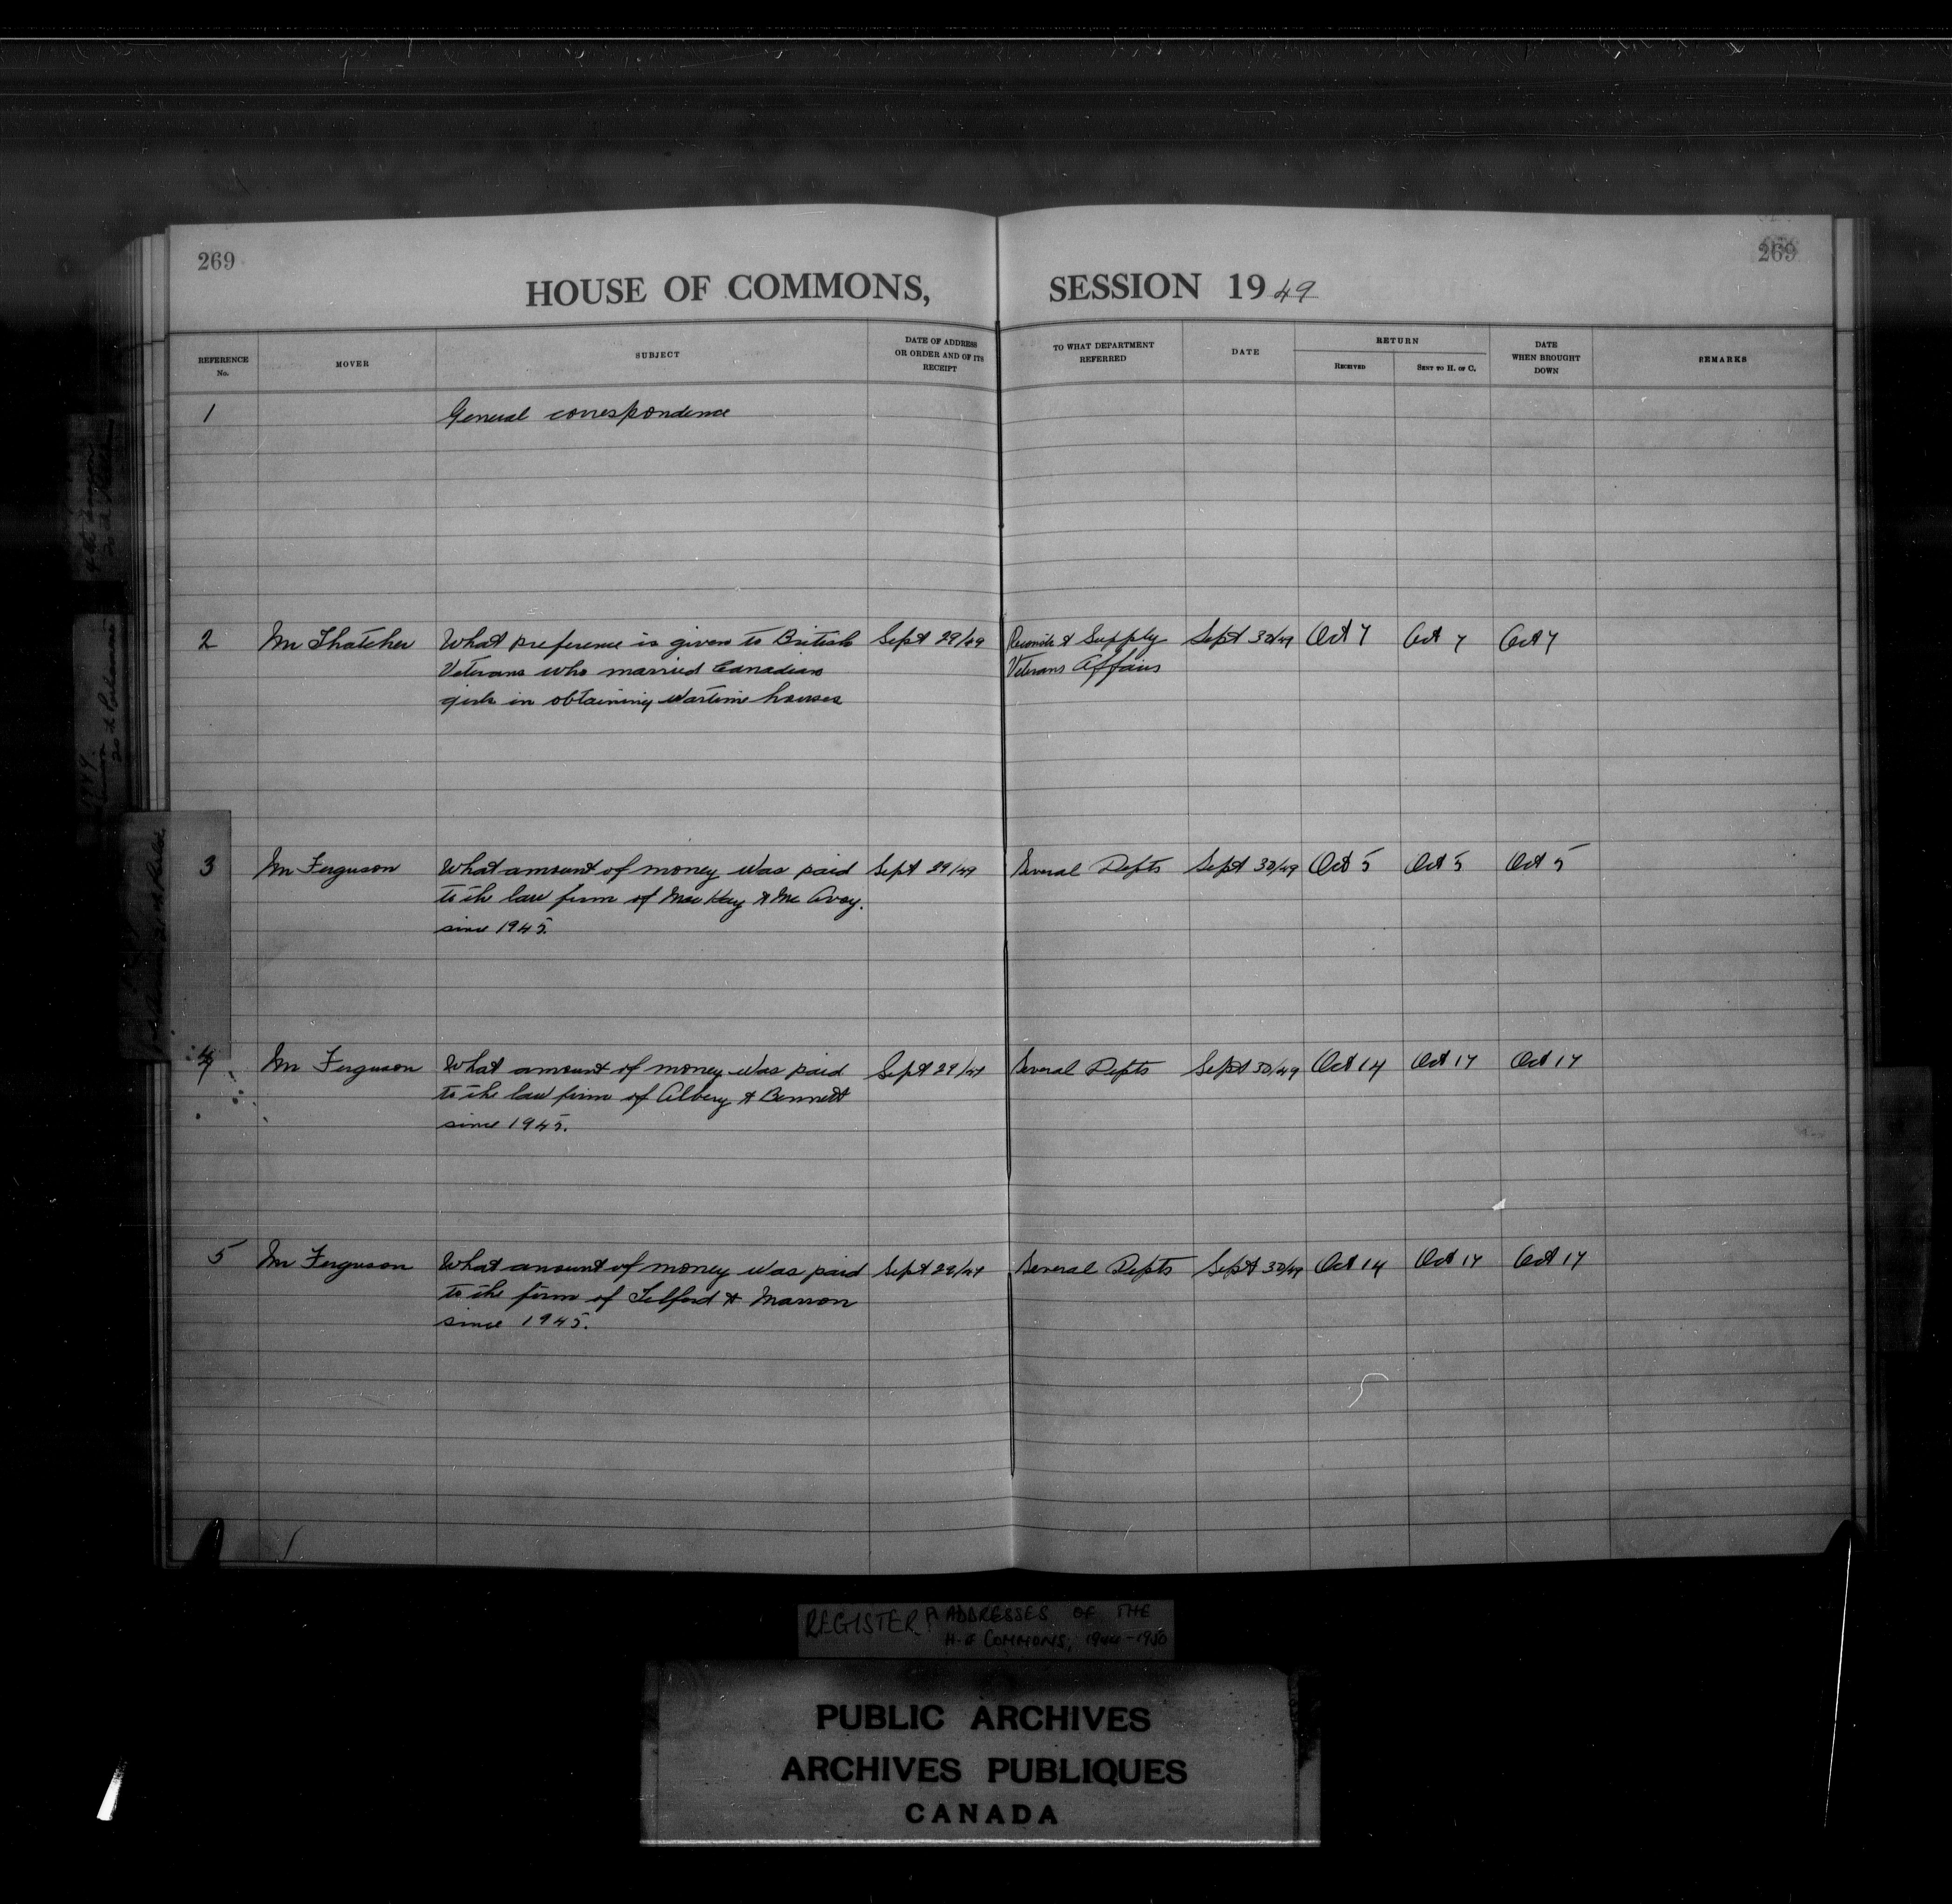 269
269
HOUSE OF COMMONS, SESSION 1949
REFERENCE No. MOVER SUBJECT DATE OF ADDRESS OR ORDER AND OF ITS RECEIPT TO WHAT DEPARTMENT REFERRED DATE RETURN RECEIVED SENT TO H. OF C. DATE WHEN BROUGHT DOWN REMARKS
1 General correspondence
2 Mr Thatcher What preference is given to British Sept 29/49 & Supply Sept 30/49 Oct 7 Oct 7 Oct 7
Veterans who married Canadian Veterans Affairs
girls in obtaining wartime houses
3 Mr Ferguson What amount of money was paid Sept 29/49 Several Depts Sept 30/49 Oct 5 Oct 5 Oct 5
to the law firm of MacKay & Mc Avoy.
since 1945.
4 Mr Ferguson What amount of money was paid Sept 29/49 Several Depts Sept 30/49 Oct 14 Oct 17 Oct 17
to the law firm of Albery & Bennett
since 1945.
5 Mr Ferguson What amount of money was paid Sept 29/49 Several Depts Sept 30/49 Oct 14 Oct 17 Oct 17
to the firm of Telford & Marron
since 1945.
REGISTER OF ADDRESSES OF THE
H. of COMMONS, 1944-1950
PUBLIC ARCHIVES
ARCHIVES PUBLIQUES
CANADA